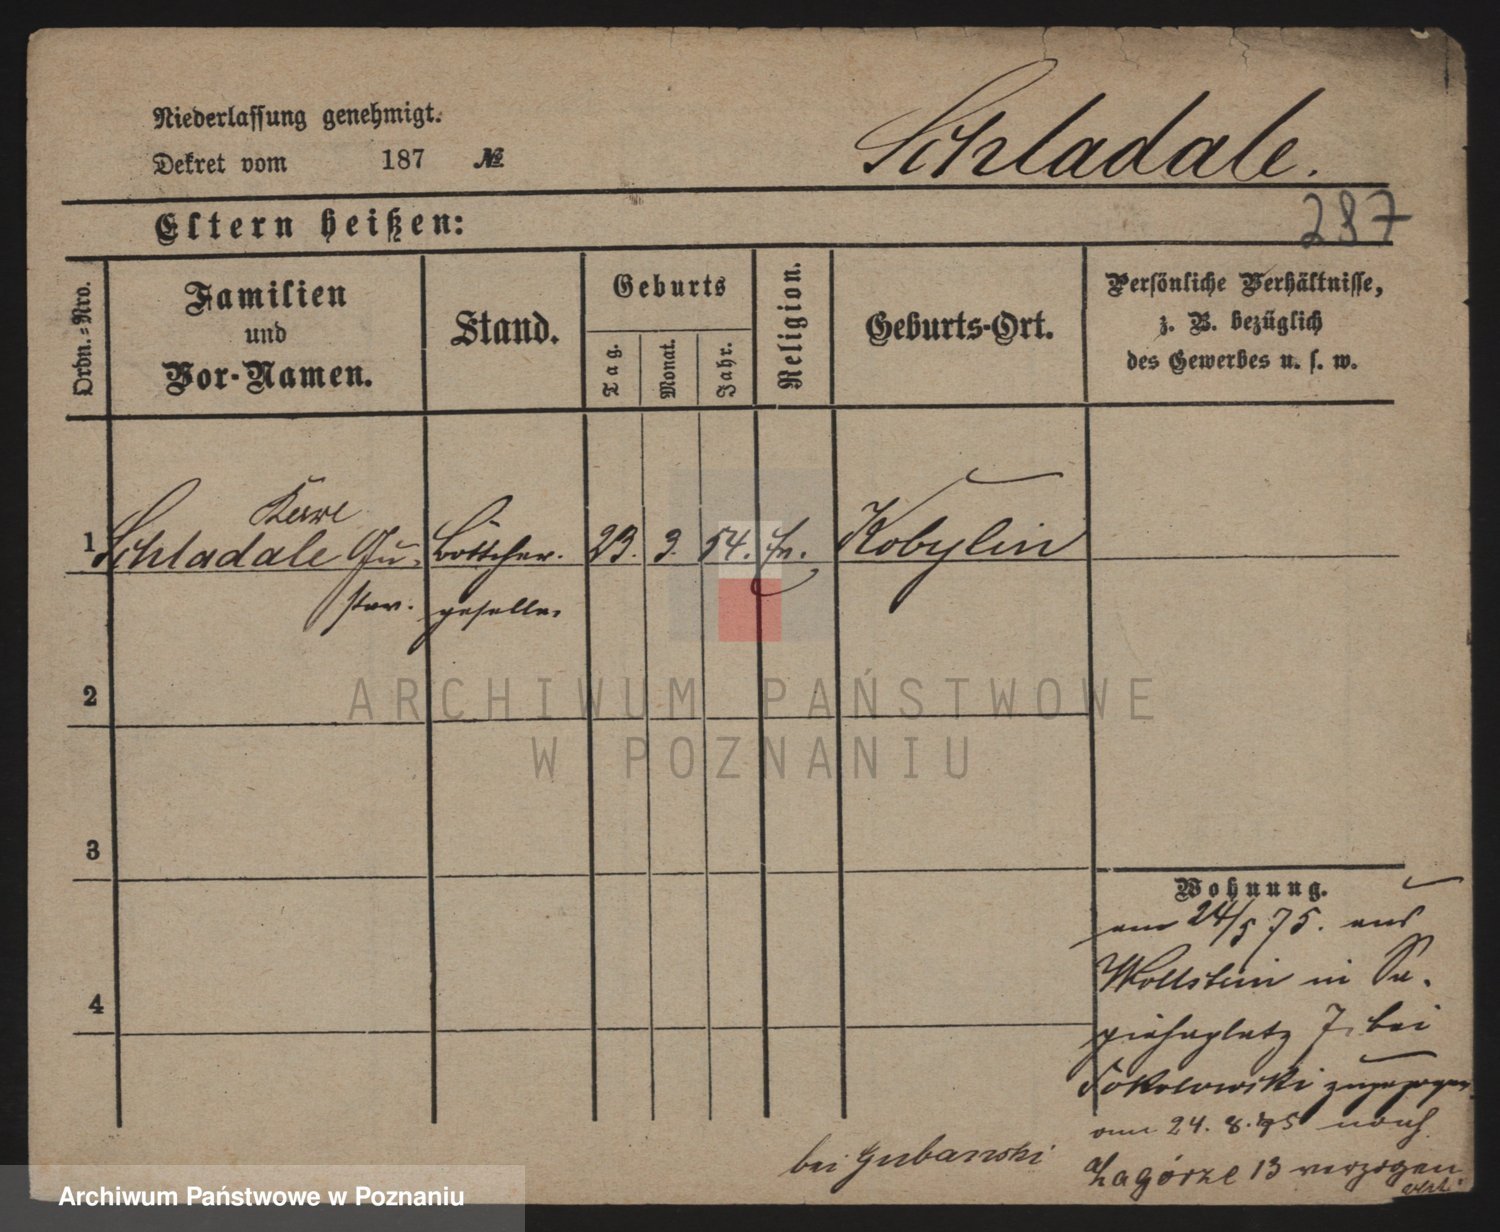 Niederlassung genehmigt.
Dekret vom 187 №
Schladale.
Eltern heißen:
287
Ordn.-Nro.
Familien
und
Vor-Namen.
Stand.
Geburts
Tag.
Monat.
Jahr.
Religion.
Geburts-Ort.
Persönliche Verhältnisse,
z. B. bezüglich
des Gewerbes u. s. w.
Karl
1 Schladale Gu- Böttcher- 23. 3. 54. Kobylin
stav. geselle.
2
3
4
Wohnung.
am 24/5 75. aus
Wollstein in Sa-
piehaplatz 7, bei
Sokolowski zugezogen
am 24. 8. 75 nach
Zagórze 13 verzogen
bei Gubanski
ARCHIWUM PAŃSTWOWE
W POZNANIU
Archiwum Państwowe w Poznaniu